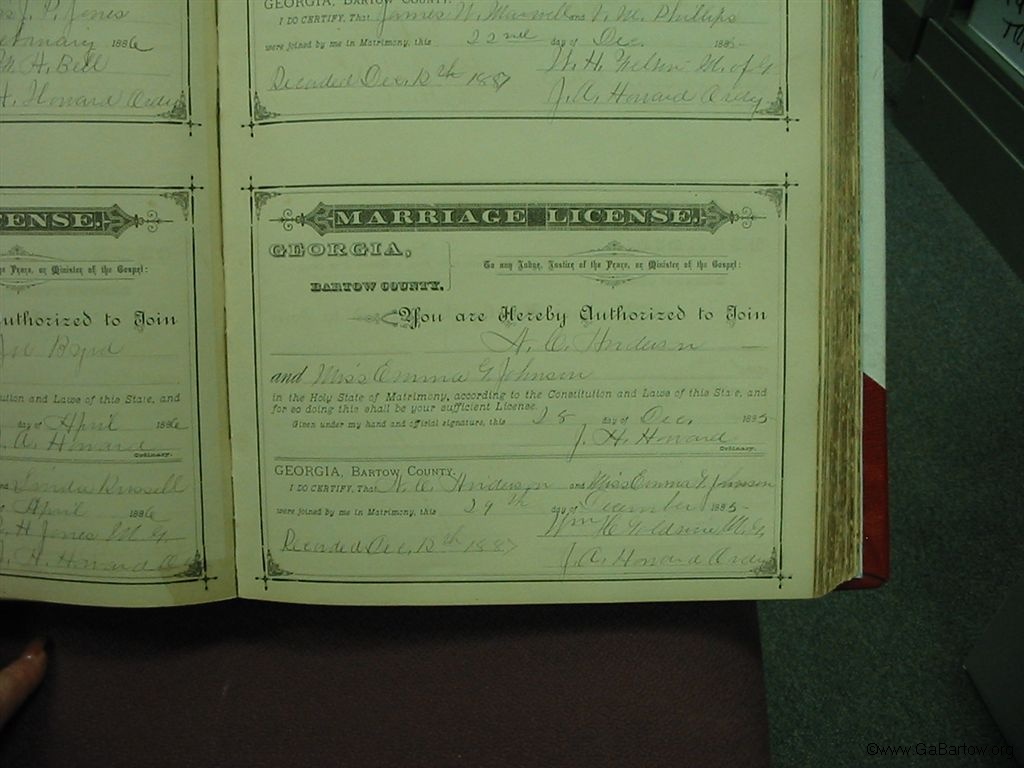 J. P. Jones
February 1886
H. Bell
Howard Ordy
GEORGIA, BARTOW COUNTY.
I DO CERTIFY, That James W. Maxwell and V. M. Phillips
were joined by me in Matrimony, this 22nd day of Dec. 1885
W. H. M. of G
Recorded Dec. 12th 1887
J. A. Howard Ordy
ENSE.
Peace, or Minister of the Gospel:
uthorized to Join
Joe Byrd
ution and Laws of this State, and
day of April 1886
A. Howard
Ordinary.
Russell
April 1886
H Jones M G
H. Howard O
MARRIAGE LICENSE.
GEORGIA,
BARTOW COUNTY.
To any Judge, Justice of the Peace, or Minister of the Gospel:
You are Hereby Authorized to Join
A. C. Anderson
and Miss Emma G Johnson
in the Holy State of Matrimony, according to the Constitution and Laws of this State, and
for so doing this shall be your sufficient License.
Given under my hand and official signature, this 28 day of Dec. 1885
J. H. Howard
Ordinary.
GEORGIA, BARTOW COUNTY.
I DO CERTIFY, That A. C. Anderson and Miss Emma G Johnson
were joined by me in Matrimony, this 29th day of December 1885
Wm M. G.
Recorded Dec. 12th 1887
J. A. Howard Ordy
©www.GaBartow.org